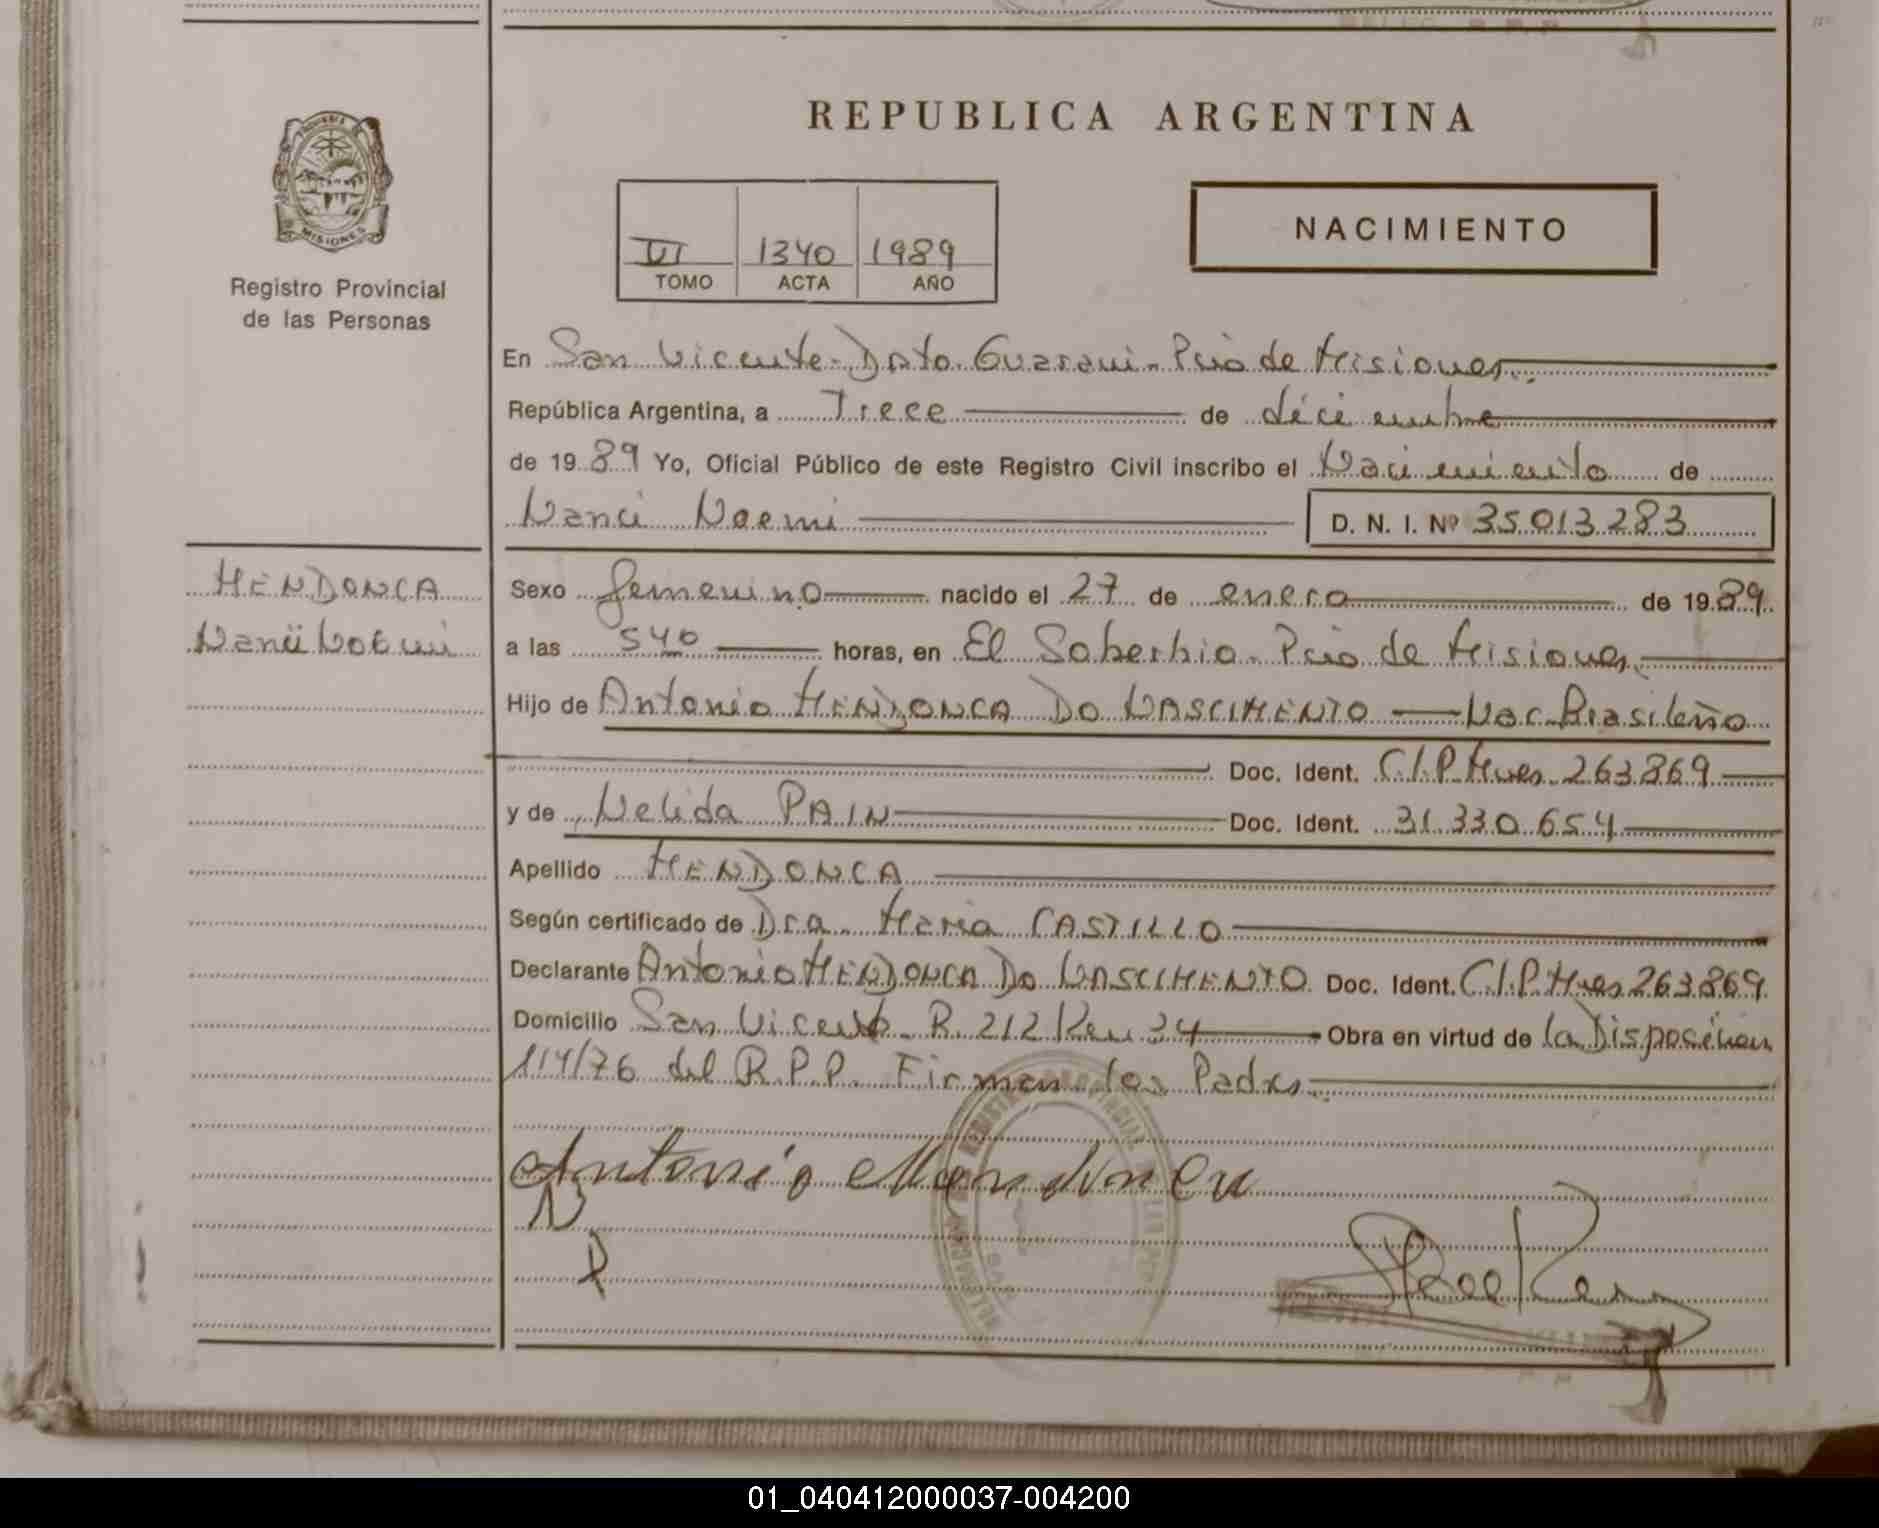 REPUBLICA ARGENTINA
PROVINCIA DE
MISIONES
Registro Provincial
de las Personas
VI 1340 1989
TOMO ACTA AÑO
NACIMIENTO
En San Vicente - Dpto. Guarani - Pcia de Misiones
República Argentina, a Trece de diciembre
de 1989 Yo, Oficial Público de este Registro Civil inscribo el Nacimiento de
Nanci Noemi D. N. I. Nº 35.013.283
MENDONCA
Nanci Noemi
Sexo femenino nacido el 27 de enero de 1989
a las 5 40 horas, en El Soberbio - Pcia de Misiones
Hijo de Antonio MENDONCA DO NASCIMENTO Nac. Brasileño
Doc. Ident. C.I.P. Mnes. 263.869
y de Nelida PAIN Doc. Ident. 31.330.654
Apellido MENDONCA
Según certificado de Dra. Maria CASTILLO
Declarante Antonio MENDONCA DO NASCIMENTO Doc. Ident. C.I.P. Mnes 263.869
Domicilio San Vicente - R. 212 Km 34 Obra en virtud de la Disposición
114/76 del R.P.P. Firman los Padres
Antonio Mendonca
N
P
01_040412000037-004200